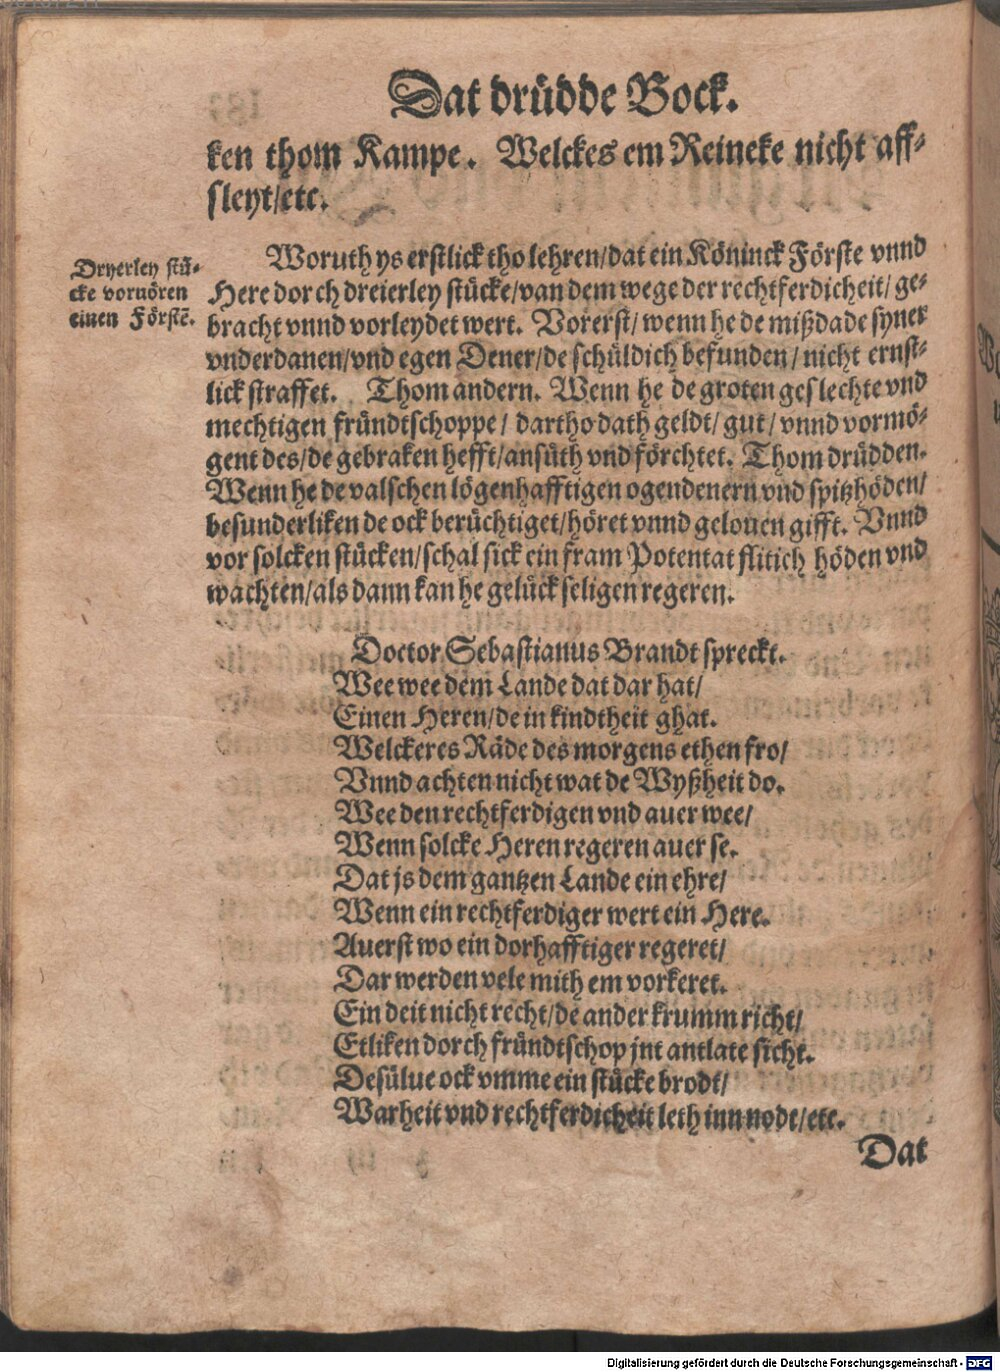 Dat drüdde Bock.
ken thom Kampe. Welckes em Reineke nicht aff-
sleyt/etc.
Dryerley stü-
cke voruören
einen Förstē.
Woruth ys erstlick tho lehren/dat ein Köninck Förste vnnd
Here dorch dreierley stücke/van dem wege der rechtferdicheit/ ge-
bracht vnnd vorleydet wert. Vorerst/wenn he de mißdade syner
vnderdanen/vnd egen Dener/de schüldich befunden/nicht ernst-
lick straffet. Thom andern. Wenn he de groten geslechte vnd
mechtigen fründtschoppe/ dartho dath geldt/gut/vnnd vormö-
gent des/de gebraken hefft/ansüth vnd förchtet. Thom drüdden.
Wenn he de valschen lögenhafftigen ogendenern vnd spitzhöden/
besunderliken de ock berüchtiget/höret vnnd gelouen gifft. Vnnd
vor solcken stücken/schal sick ein fram Potentat flitich höden vnd
wachten/als dann kan he gelückseligen regeren.
Doctor Sebastianus Brandt spreckt.
Wee wee dem Lande dat dar hat/
Einen Heren/de in kindtheit ghat.
Welckeres Räde des morgens ethen fro/
Vnnd achten nicht wat de Wyßheit do.
Wee den rechtferdigen vnd auer wee/
Wenn solcke Heren regeren auer se.
Dat js dem gantzen Lande ein ehre/
Wenn ein rechtferdiger wert ein Here.
Auerst wo ein dorhafftiger regeret/
Dar werden vele mith em vorkeret.
Ein deit nicht recht/de ander krumm richt/
Etliken dorch fründtschop jnt antlate sicht.
Desülue ock vmme ein stücke brodt/
Warheit vnd rechtferdicheit leth inn nodt/etc.
Dat
Digitalisierung gefördert durch die Deutsche Forschungsgemeinschaft - DFG